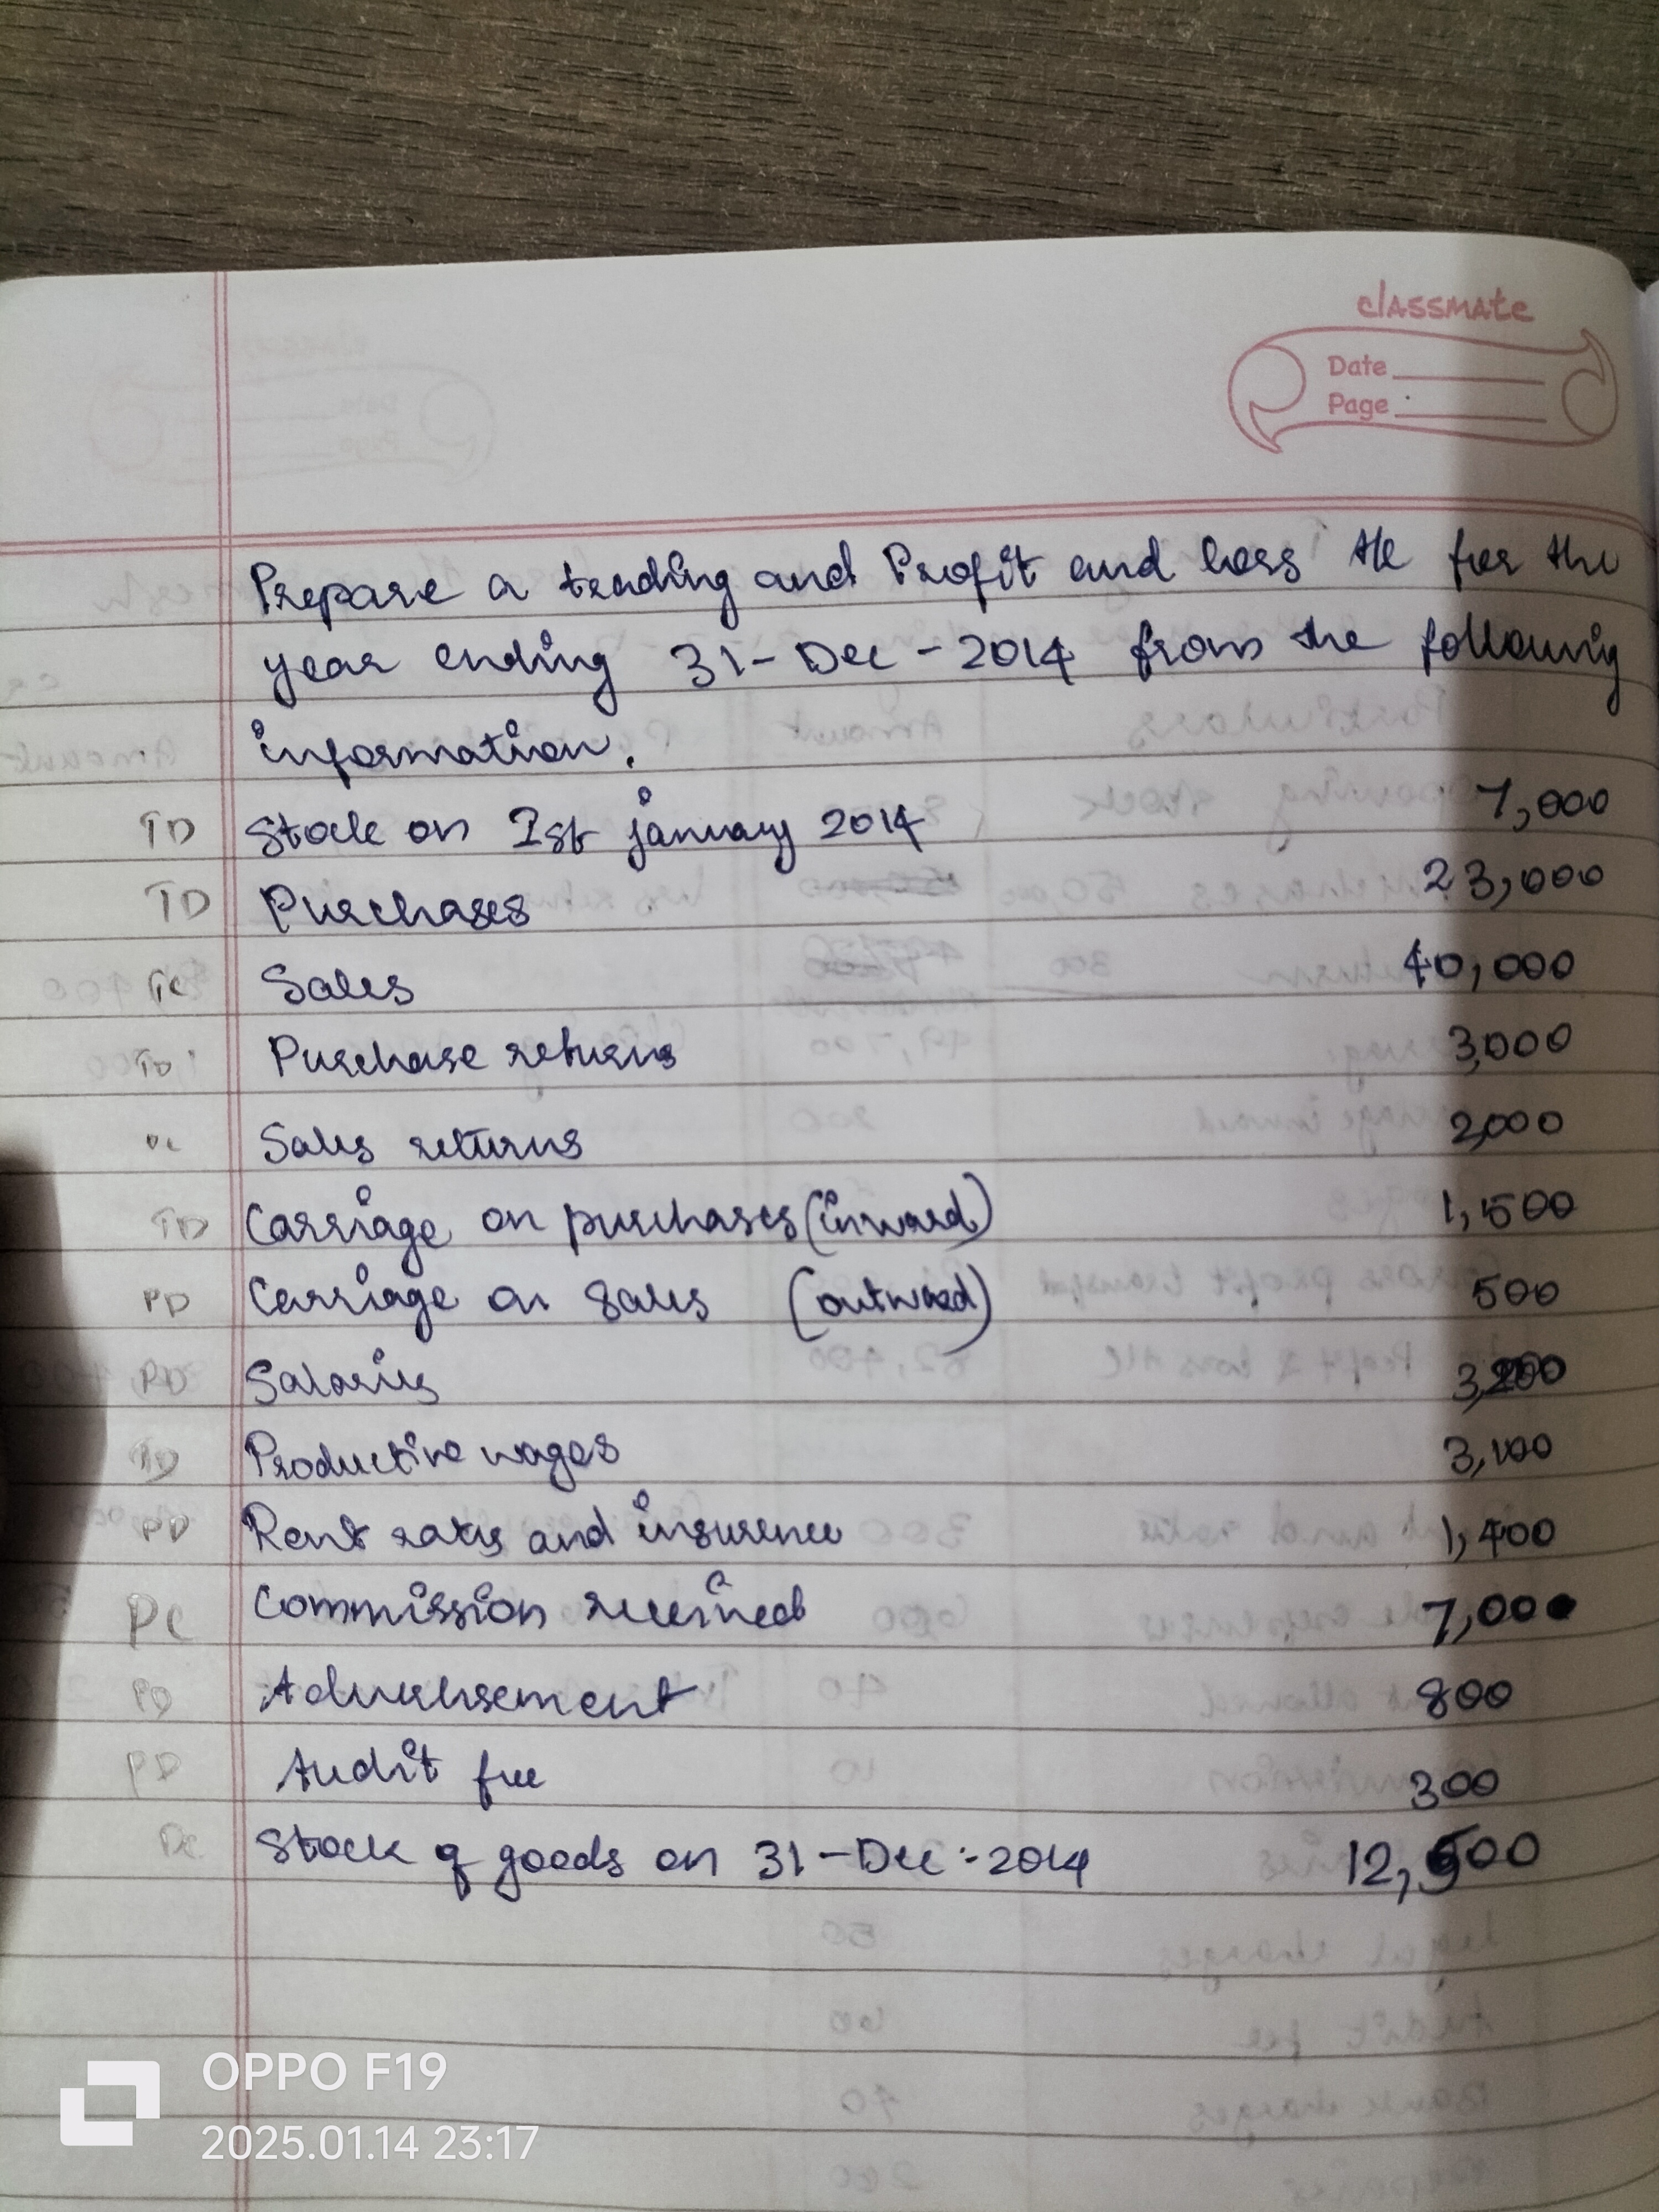 classmate
Date
Page
Prepare a trading and Profit and loss A/c for the
year ending 31-Dec-2014 from the following
information.
TD Stock on 1st january 2014 7,000
TD Purchases 23,000
TC Sales 40,000
TD Purchase returns 3,000
Sales returns 2,000
TD Carriage on purchases (inward) 1,500
PD Carriage on sales (outward) 500
PD Salaries
TD Productive wages 3,100
PD Rent rates and insurence 1,400
PC Commission received 7,000
PD Advertisement 800
PD Audit fee 300
Stock of goods on 31-Dec-2014
OPPO F19
2025.01.14 23:17